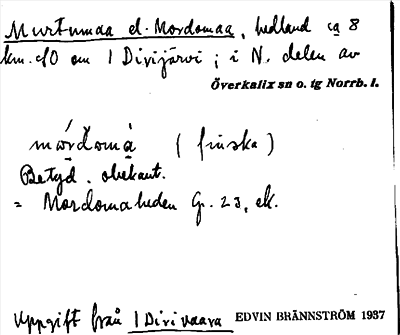 Murtumaa el. Mordomaa, hedland ca 8
km. NO om 1 Divijärvi ; i N. delen av
Överkalix sn o. tg Norrb. l.
mórdomà (finska)
Betyd. obekant.
= Mordomaheden Gr. 23, ek.
Uppgift från 1 Divivaara EDVIN BRÄNNSTRÖM 1937